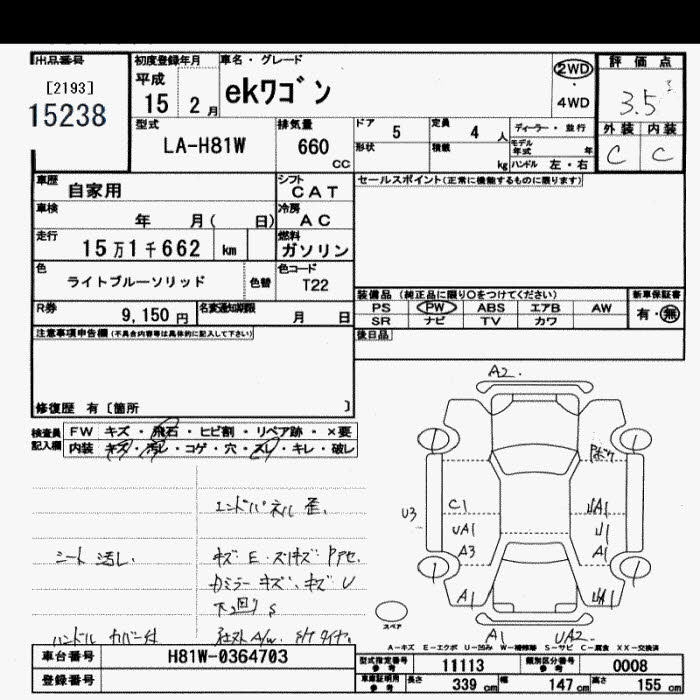 出品番号
[2193]
15238
初度登録年月
平成
15 2月
車名・グレード
ekワゴン
2WD
・
4WD
評価点
3.5
外装 内装
C C
型式
LA-H81W
排気量
660
CC
ドア 5
定員 4 人
ディーラー・並行
形状
積載 kg
モデル年式 年
ハンドル 左・右
車歴
自家用
シフト
CAT
セールスポイント(正常に機能するものに限ります)
車検
年 月( 日)
冷房
AC
走行
15万1千662 km
燃料
ガソリン
色
ライトブルーソリッド
色替
色コード
T22
装備品 (純正品に限り○をつけてください)
PS PW ABS エアB AW
SR ナビ TV カワ
新車保証書
有・無
R券
9,150円
名変通知期限
月 日
後日品
注意事項申告欄(不具合内容等は具体的に記入して下さい)
修復歴 有〔箇所 〕
検査員記入欄
FW キズ・飛石・ヒビ割・リペア跡・×要
内装 キズ・汚レ・コゲ・穴・スレ・キレ・破レ
エンドパネル 歪.
シート 汚し.
キズ E
カミラー キズ、キズ U
下回り S
ハンドル カバー付
社外A/W.
A2.
U3
C1
UA1
A3
A1
A1
A1
UA2
スペア
A－キズ E－エクボ U－凹み W－補修跡 S－サビ C－腐食 XX－交換済
車台番号
H81W-0364703
登録番号
型式指定番号
参考
11113
類別区分番号
参考
0008
車庫証明用
参考
長さ 339 cm
幅 147 cm
高さ 155 cm